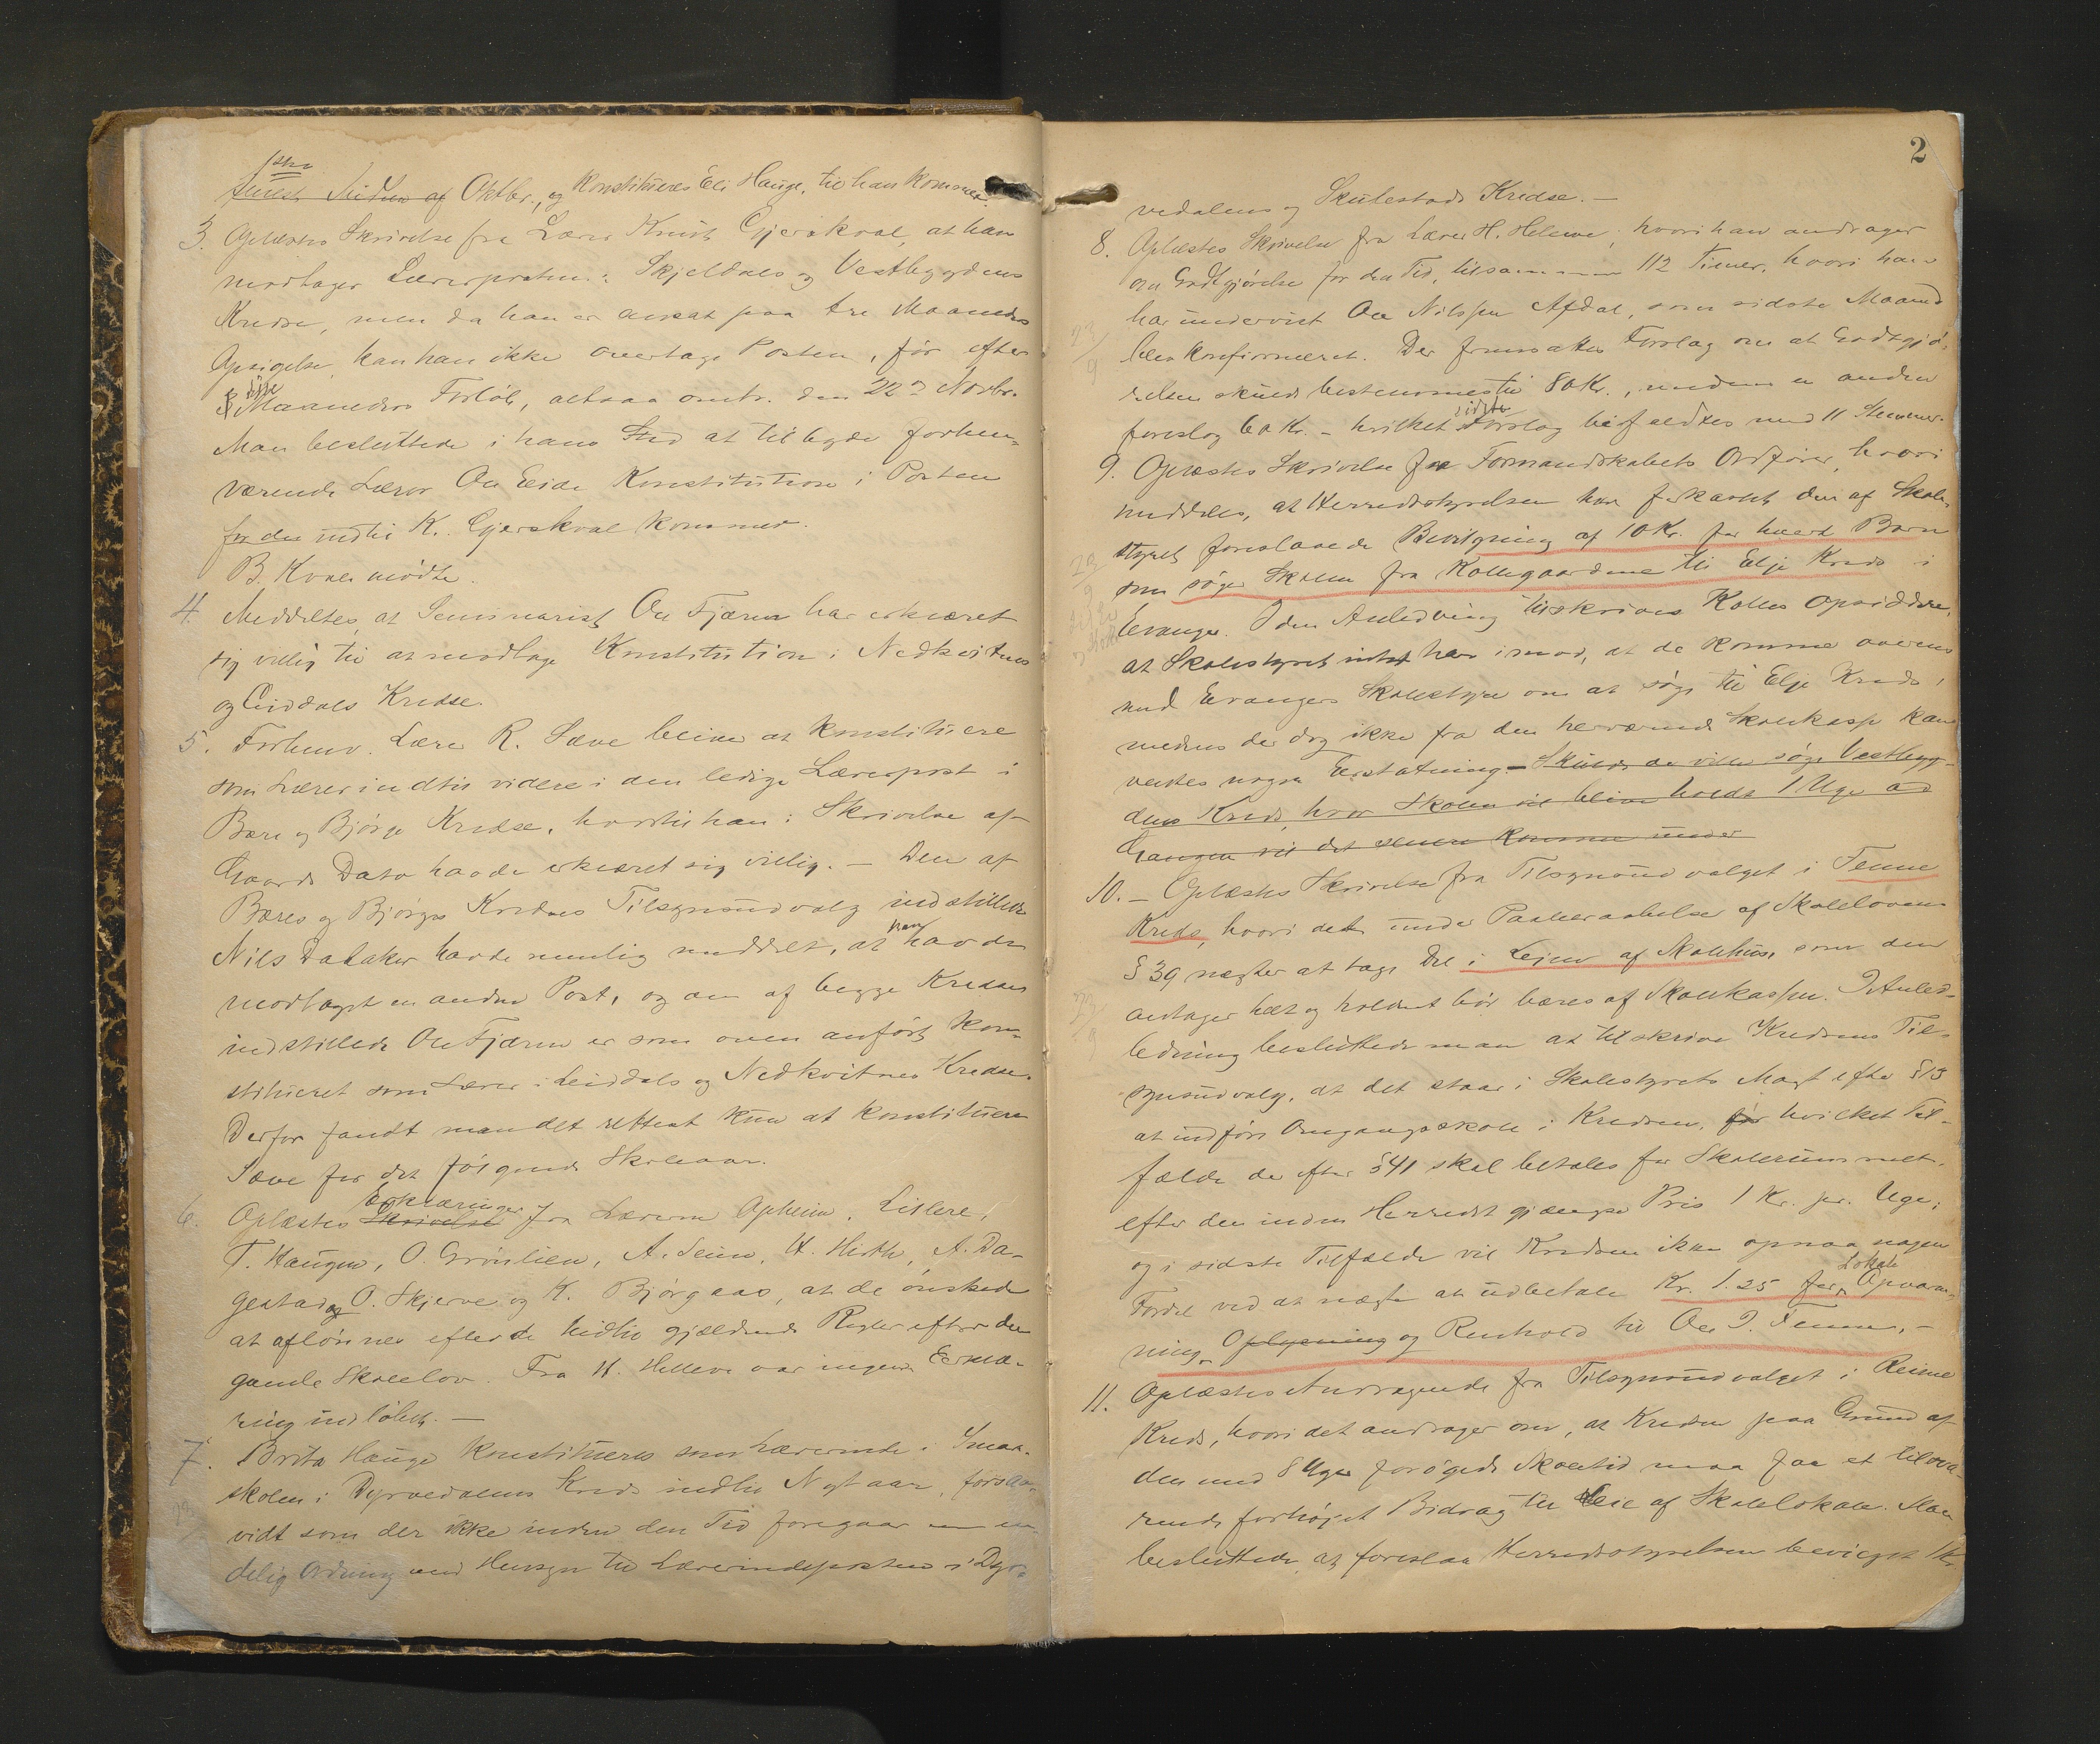 1ste
senest Midten af Oktbr., og konstitueres Eli Hauge, til han kommer.
3. Oplæstes Skrivelse fra Lærer Knut Gjerskval, at han
modtager Lærerposten i Skjeldals og Vestbygdens
Kredse, men da han er ansat paa tre Maaneders
Opsigelse, kan han ikke overtage Posten, før efter
disse
3 Maaneders Forløb, altsaa omtr. den 22de Novbr.
Man besluttede i hans Sted at tilbyde forhen-
værende Lærer Ole Eide Konstitution i Posten
for der indtil K. Gjerskval kommer.
B. Kvale mødte.
4. Meddeltes, at Seminarist Ole Tjærne har erklæret
sig villig til at modtage Konstitution i Nedkvitnes
og Liddals Kredse.
5. Forhenv. Lærer R. Sæve bliver at konstituere
som Lærer indtil videre i den ledige Lærerpost i
Bære og Bjørge Kredse, hvortil han i Skrivelse af
Gaards Dato havde erklæret sig villig. – Den af
Bæres og Bjørges Kredses Tilsynsudvalg indstillede
Nils Dalaker havde nemlig meddelt, at han havde
modtaget en anden Post, og den af begge Kredse
indstillede Ole Tjærne er som oven anført kon-
stitueret som Lærer i Leiddals og Nedkvitnes Kredse.
Derfor fandt man det rettest kun at konstituere
Sæve for det følgende Skoleaar.
Erklæringer
6. Oplæstes Skrivelse fra Lærerne Opheim, Lislere,
T. Haugen, O. Grønlien, A. Seim, H. Hirth, A. Da-
gestad og O. Skjerve og K. Bjørgaas, at de ønskede
at aflønnes efter de hidtil gjældende Regler efter den
gamle Skolelov. Fra H. Helleve var ingen Erklæ-
ring indløbet. –
7. Brita Hauge konstitueres som Lærerinde i Smaa-
skolen i Dyrvedalens Kreds indtil Nytaar, forsaa-
vidt som der ikke inden den Tid foregaar en en-
delig Ordning med Hensyn til Lærerindeposten i Dyr-
2
vedalens og Skulestads Kredse. –
8. Oplæstes Skrivelse fra Lærer H. Helleve, hvori han andrager
om Godtgjørelse for den Tid, tilsammen 112 Timer, hvori han
har undervist Ole Nilssen Afdal, som sidste Maaned
23/9
blev konfirmeret. Der fremsattes Forslag om at Godtgjø-
relsen skulde bestemmes til 80 Kr., medens en anden
foreslog 60 Kr. – hvilket sidste Forslag bifaldtes med 11 Stemmer.
9. Oplæstes Skrivelse fra Formandskabets Ordfører, hvori
meddeles, at Herredsstyrelsen har forkastet den af Skole-
styret foreslaaede Bevilgning af 10 Kr. for hvert Barn
23/9
som søger Skolen fra Kollegaardene til Elje Kreds i
Evanger. I den Anledning tilskrives Kolles Opsiddere,
at Skolestyret intet har imod, at de komme overens
med Evangers Skolestyre om at søge til Elje Kreds,
medens der dog ikke fra den herværende Skolekasse kan
ventes nogen Erstatning. – Skulde de ville søge Vestbyg-
dens Kreds, hvor Skolen vil blive holdt 1 Uge ad
Gangen vil det senere komme under
10. – Oplæstes Skrivelse fra Tilsynsudvalget i Tenne
Kreds, hvori det under Paaberaabelse af Skolelovens
§ 39 nægter at tage Del i Leien af Skolehus, som den
antager helt og holdent bør bæres af Skolekassen. I Anled-
23/9
ledning besluttede man at tilskrive Kredsens Til-
synsudvalg, at det staar i Skolestyrets Magt efter § 13
at indføre Omgangsskole i Kredsen, for hvilket Til-
fælde der efter § 41 skal betales for Skolerummet
efter den inden Herredet gjængse Pris 1 Kr. pr. Uge,
og i sidste Tilfælde vil Kredsen ikke opnaa nogen
Fordel ved at nægte at udbetale Kr. 1.25 for Lokale Opvarm-
ning, Oplysning og Renhold til Ole I. Tenne. –
11. Oplæstes Andragende fra Tilsynsudvalget i Reime
Kreds, hvori det andrager om, at Kredsen paa Grund af
den med 8 Uger forøgede Skoletid maa faa et tilsva-
rende forhøjet Bidrag til Leie af Skolelokale. Man
besluttede at foreslaa Herredsstyrelsen bevilget 1 Kr.